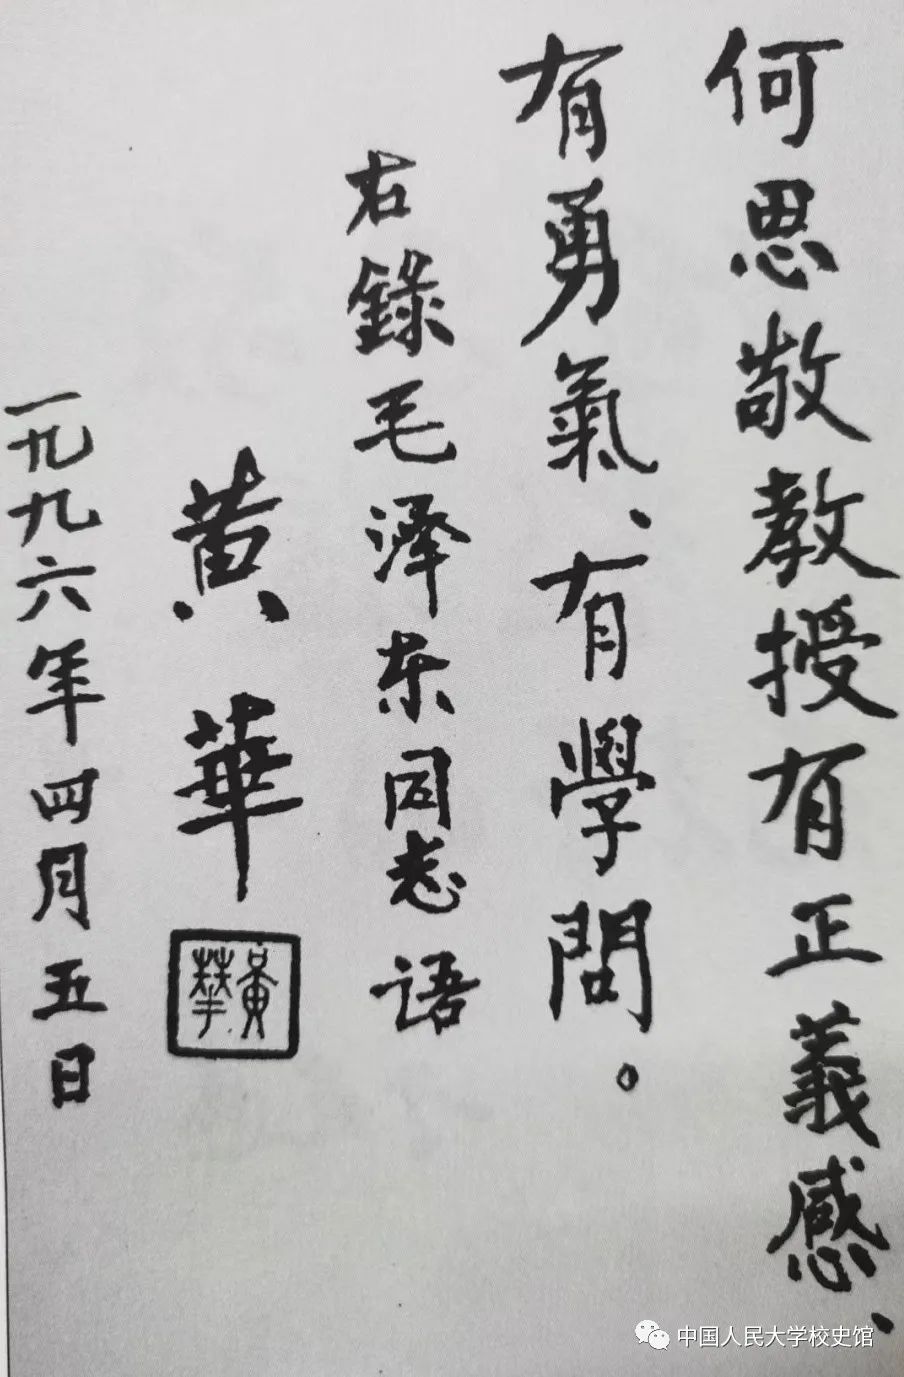 何思敬教授有正義感、
有勇氣、有學問。
右錄毛泽东同志语
黄華
黄華
一九九六年四月五日
中国人民大学校史馆